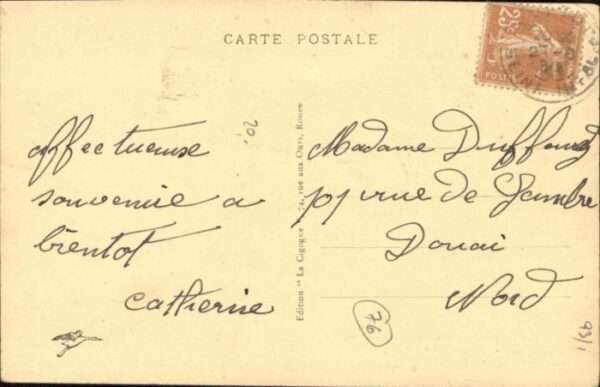 CARTE POSTALE
25c
POSTES
20,
affectueuse
souvenir a
bientot
catherine
Edition "La Cigogne", 74, rue aux Ours, Rouen
Madame
rue de
Douai
Nord
76
93/1